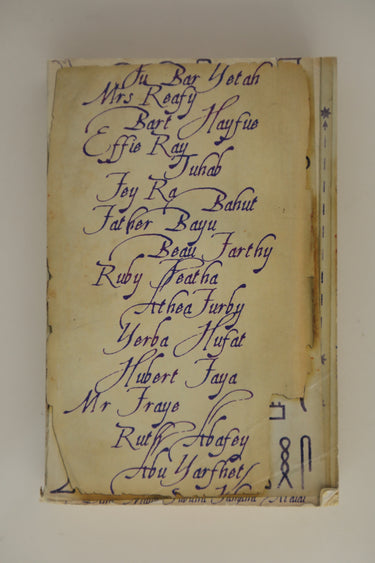 Fu Bar Yetah
Mrs Reafy
Bart Hayfue
Effie Ray
Tuhab
Fey Ra Bahut
Father Bayu
Beau Farthy
Ruby Featha
Athea Furby
Yerba Hufat
Hubert Faya
Mr Fraye
Ruth Abafey
Abu Yarfhet